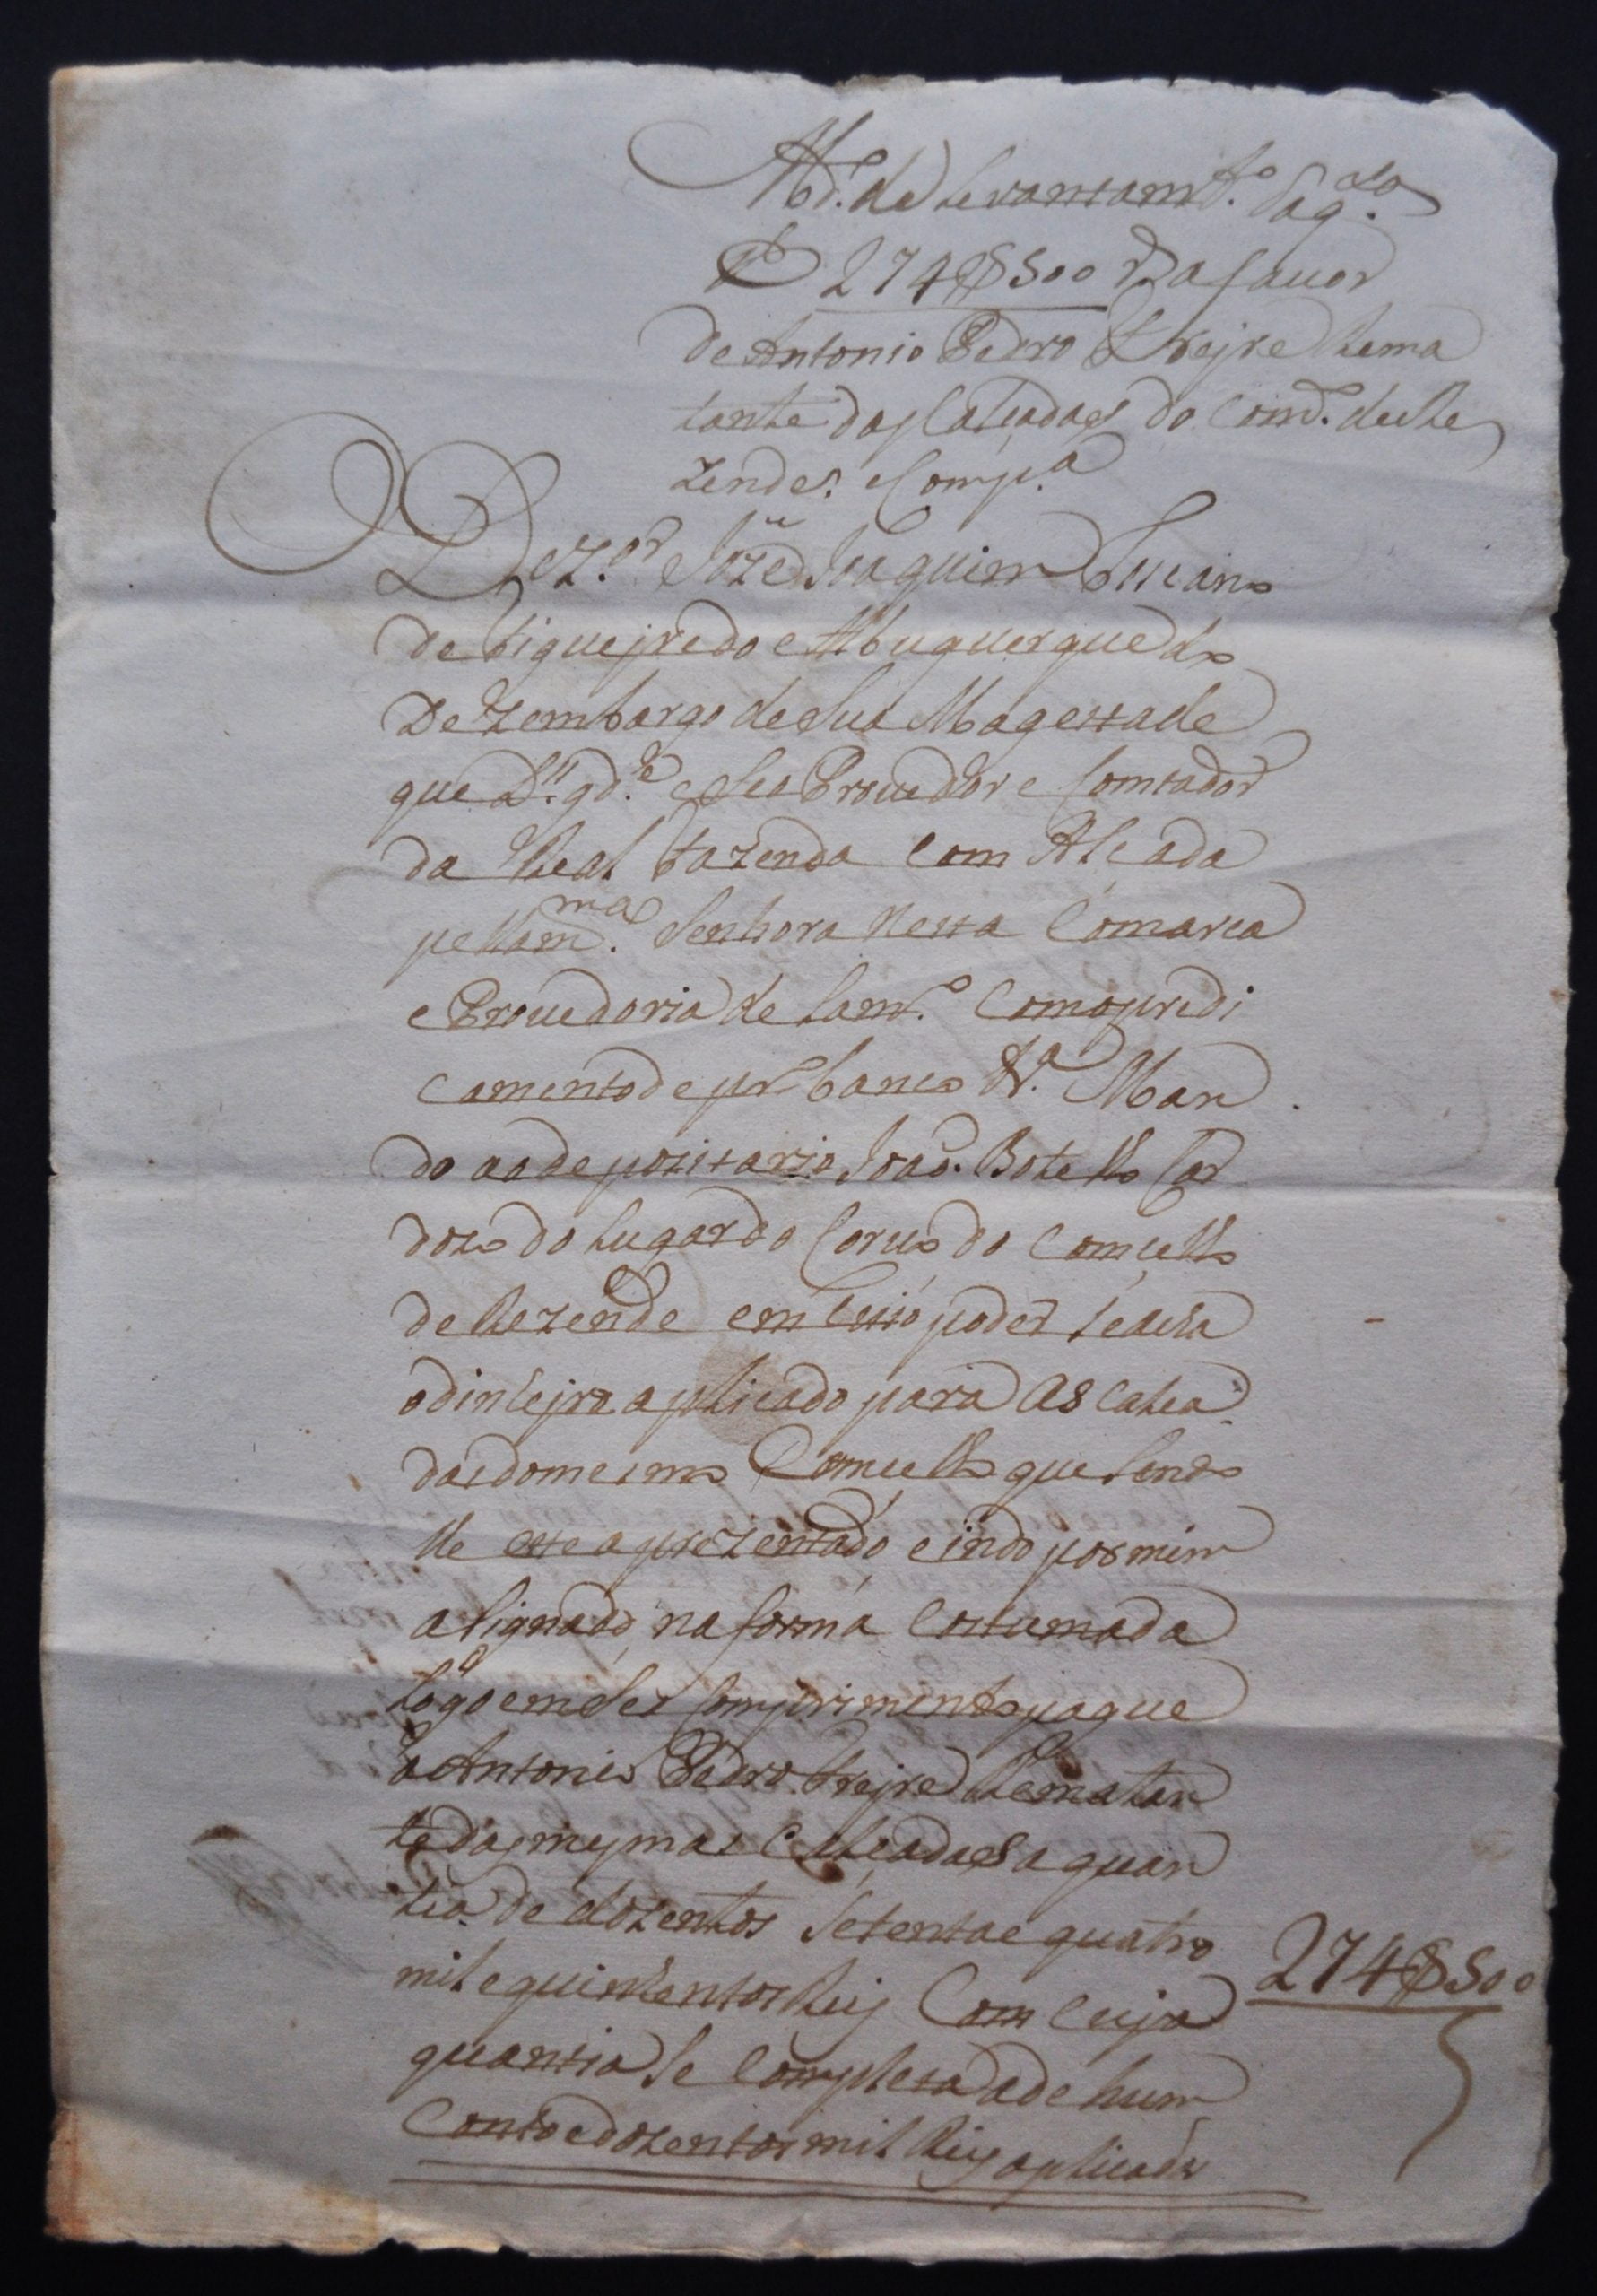 Md.º de Levantamt.º e Pag.to
D 274$500 rs a favor
de Antonio Pedro Freyre Rema
tante das Calçadas do Conc.º de Re
zende. e Comp.a
Dez.or Joze Joaquim Luciano
de Figueyredo e Albuquerque do
Dezembargo de Sua Magestade
que D.s g.de e Seo Provedor e Contador
da Real Fazenda com Alçada
pella m.ma Senhora nesta Comarca
e Provedoria de Lam.º com o predi
camento de pr.º banco &.a Man
do ao depozitario João Botelho Car
dozo do Lugar do Corvo do Comcelho
de Rezende em Cujo poder se acha
o dinheyro aplicado para as Calça
das do mesmo Comcelho que sendo
lhe este aprezentado e indo por mim
asignado na forma Costumada
logo em seu Comprimento pague
a Antonio Pedro Freyre Rematan
te das mesmas Calçadas a quan
tia de dozentos setenta e quatro
mil e quinhentos Reis Com Cuja 274$500
quantia se Completa a de hum
Conto e dozentos mil Reis aplicados